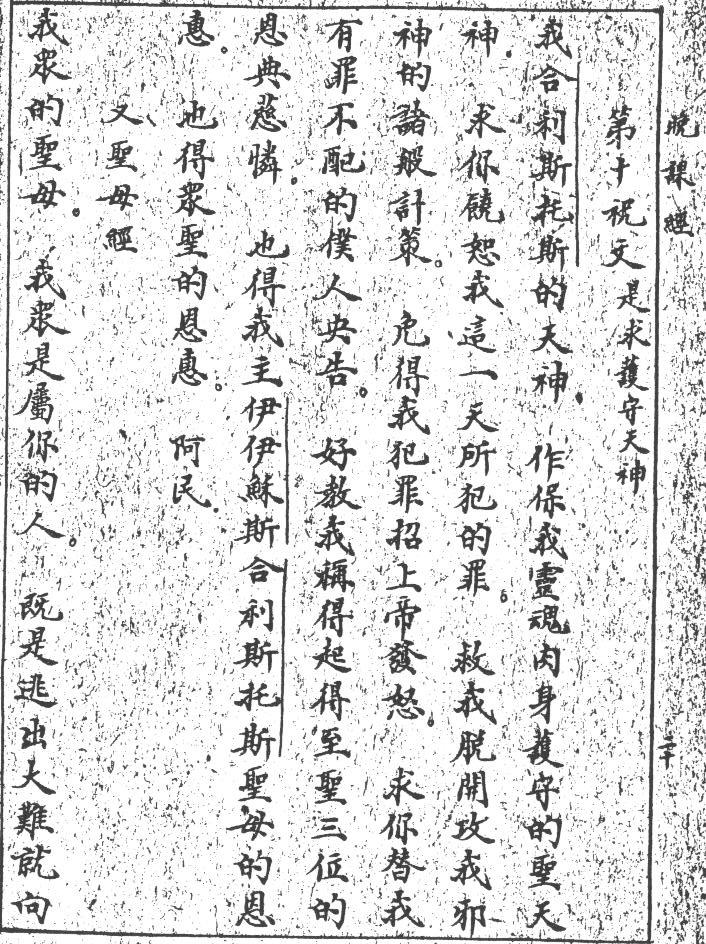 晚課經
二十
第十祝文 是求護守天神
我合利斯托斯的天神。 作保我靈魂肉身護守的聖天
神。 求你饒恕我這一天所犯的罪。 救我脫開攻我邪
神的諸般計策。 免得我犯罪招上帝發怒。 求你替我
有罪不配的僕人央告。 好教我稱得起得至聖三位的
恩典慈憐。 也得我主伊伊穌斯合利斯托斯聖母的恩
惠。 也得眾聖的恩惠。 阿民。
又聖母經
我眾的聖母。 我眾是屬你的人。 既是逃出大難就向